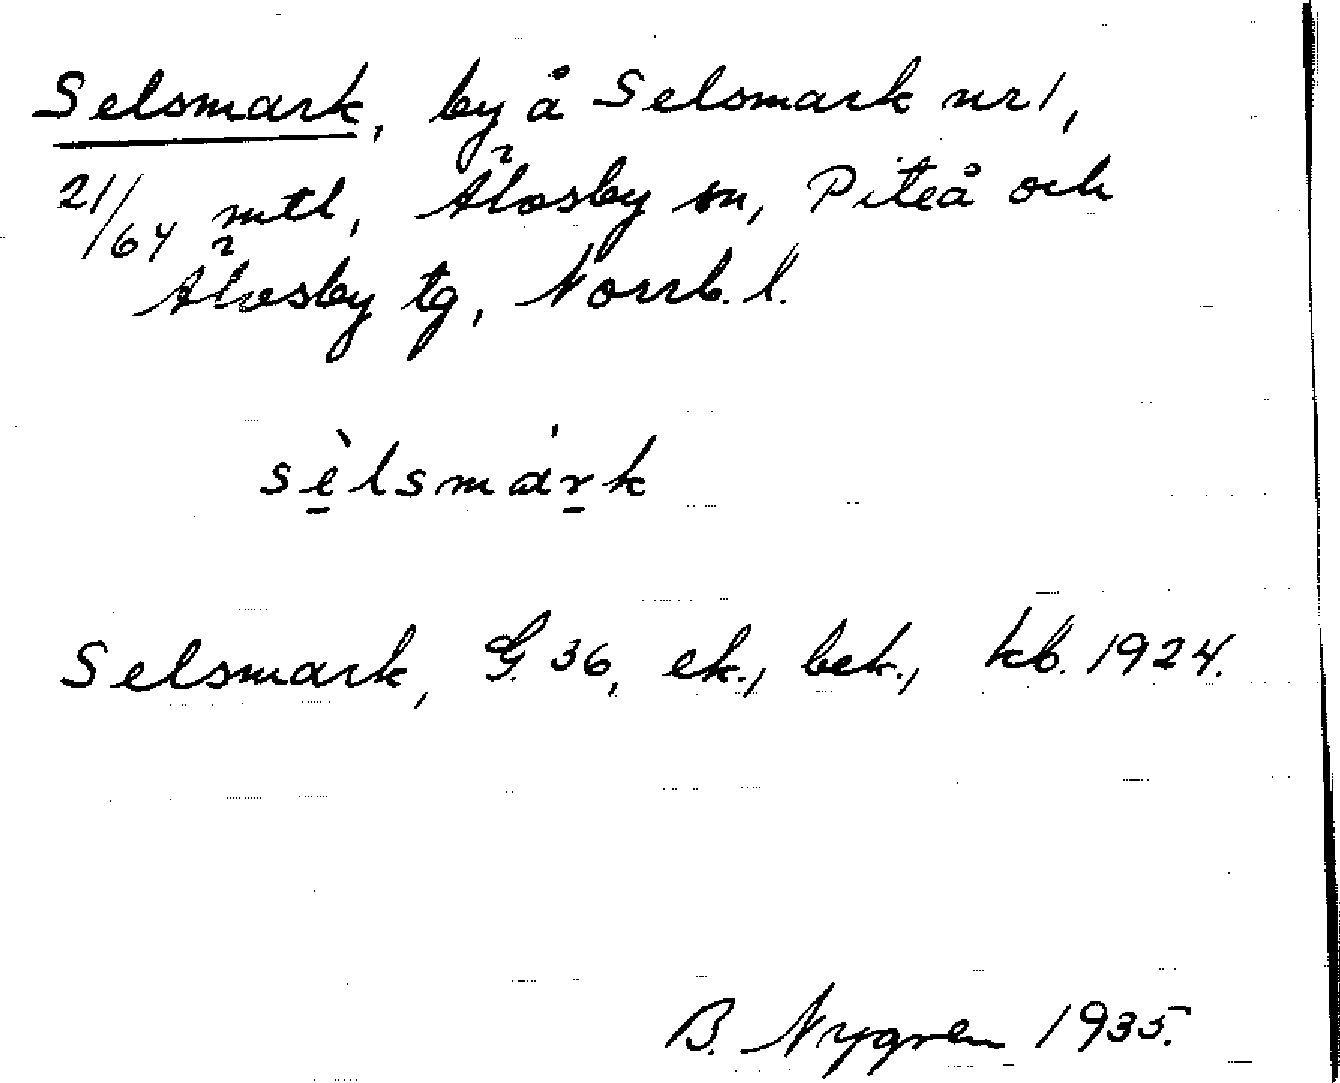 Selsmark, by å Selsmark nr 1,
21/64 mtl, Älvsby sn, Piteå och
Älvsby tg, Norrb. l.
sè̱lsmáṟk
Selsmark, G. 36, ek., bek., kb. 1924.
B. Nygren 1935.